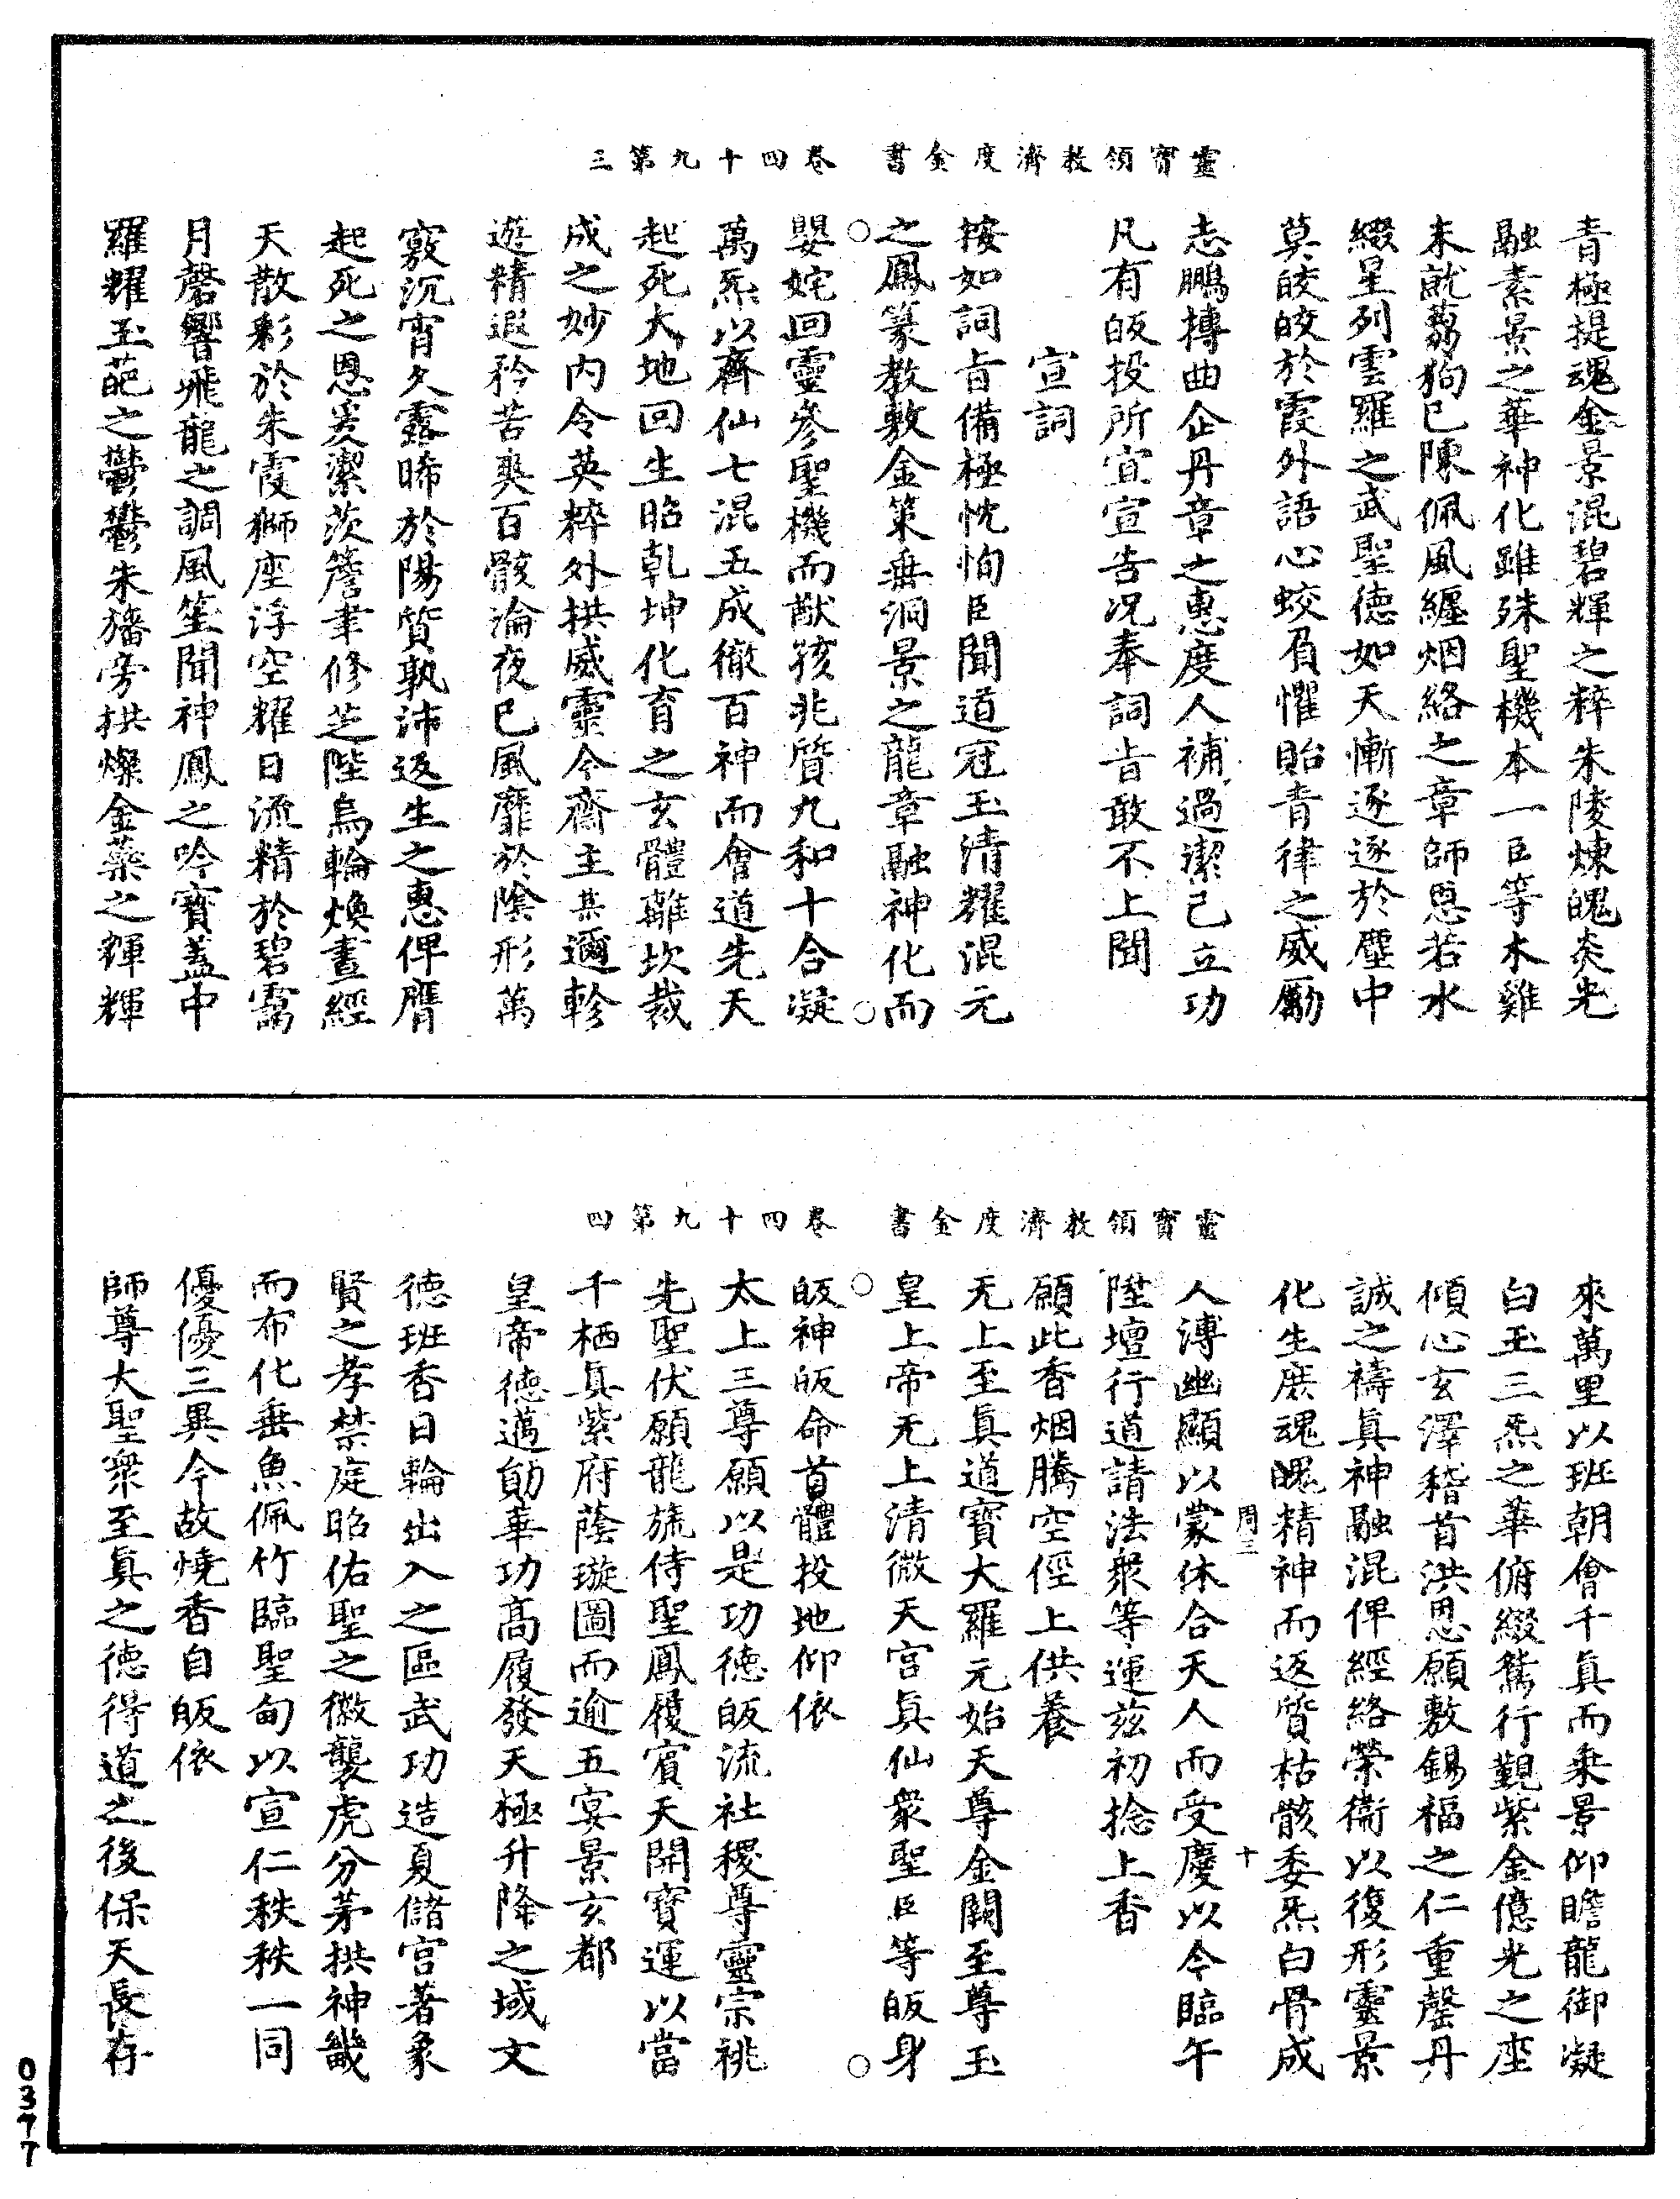 靈寶領教濟度金書 卷四十九第三
青極提魂金景混碧輝之粹朱陵煉魄炎光
融素景之華神化雖殊聖機本一臣等木雞
未就蒭狗已陳佩風纏烟絡之章師恩若水
綴星列雲羅之武聖德如天慚逐逐於塵中
莫皎皎於霞外語心蛟眉懼貽青律之威勵
志鵬摶曲企丹章之惠度人補過潔己立功
凡有皈投所宜宣告况奉詞旨敢不上聞
宣詞
按如詞旨備極忱恂臣聞道冠玉清耀混元
之鳳篆教敷金策垂洞景之龍章融神化而
嬰姹回靈參聖機而猷㛄兆質九和十合凝
萬炁以齊仙七混五成徹百神而會道先天
起死大地回生昭乾坤化育之玄體離坎裁
成之妙内令英粹外拱威靈今齋主某邇軫
遊精遐矜苦爽百骸淪夜已風靡於陰形萬
竅沉宵久露晞於陽質孰沛返生之惠俾膺
起死之恩爰潔茨簷聿修芝陛烏輪煥晝經
天散彩於朱霞獅座浮空耀日流精於碧靄
月磬響飛龍之調風笙聞神鳳之吟寶蓋中
羅耀玉葩之鬱鬱朱旛旁拱燦金藥之輝輝
靈寶領教濟度金書 卷四十九第四
來萬里以班朝會千真而乘景仰瞻龍御凝
白玉三炁之華俯綴鴛行覲紫金億光之座
傾心玄澤稽首洪恩願敷錫福之仁重罄丹
誠之禱真神融混俾經絡榮衛以復形靈景
化生庶魂魄精神而返質枯骸委炁白骨成
周三 十
人溥幽顯以蒙休合天人而受慶以今臨午
陞壇行道請法衆等運茲初捻上香
願此香烟騰空徑上供養
无上至真道寶大羅元始天尊金闕至尊玉
皇上帝无上清微天宮真仙衆聖臣等皈身
皈神皈命首體投地仰依
太上三尊願以是功德皈流社稷尊靈宗祧
先聖伏願龍旒侍聖鳳履賓天開寶運以當
千栖真紫府蔭璇圖而逾五宴景玄都
皇帝德邁勛華功高履發天極升降之域文
德班香日輪出入之區武功造夏儲宮著象
賢之孝禁庭昭佑聖之徽襲虎分茅拱神畿
而布化垂魚佩竹臨聖甸以宣仁秩秩一同
優優三異今故燒香自皈依
師尊大聖衆至真之德得道之後保天長存
0377